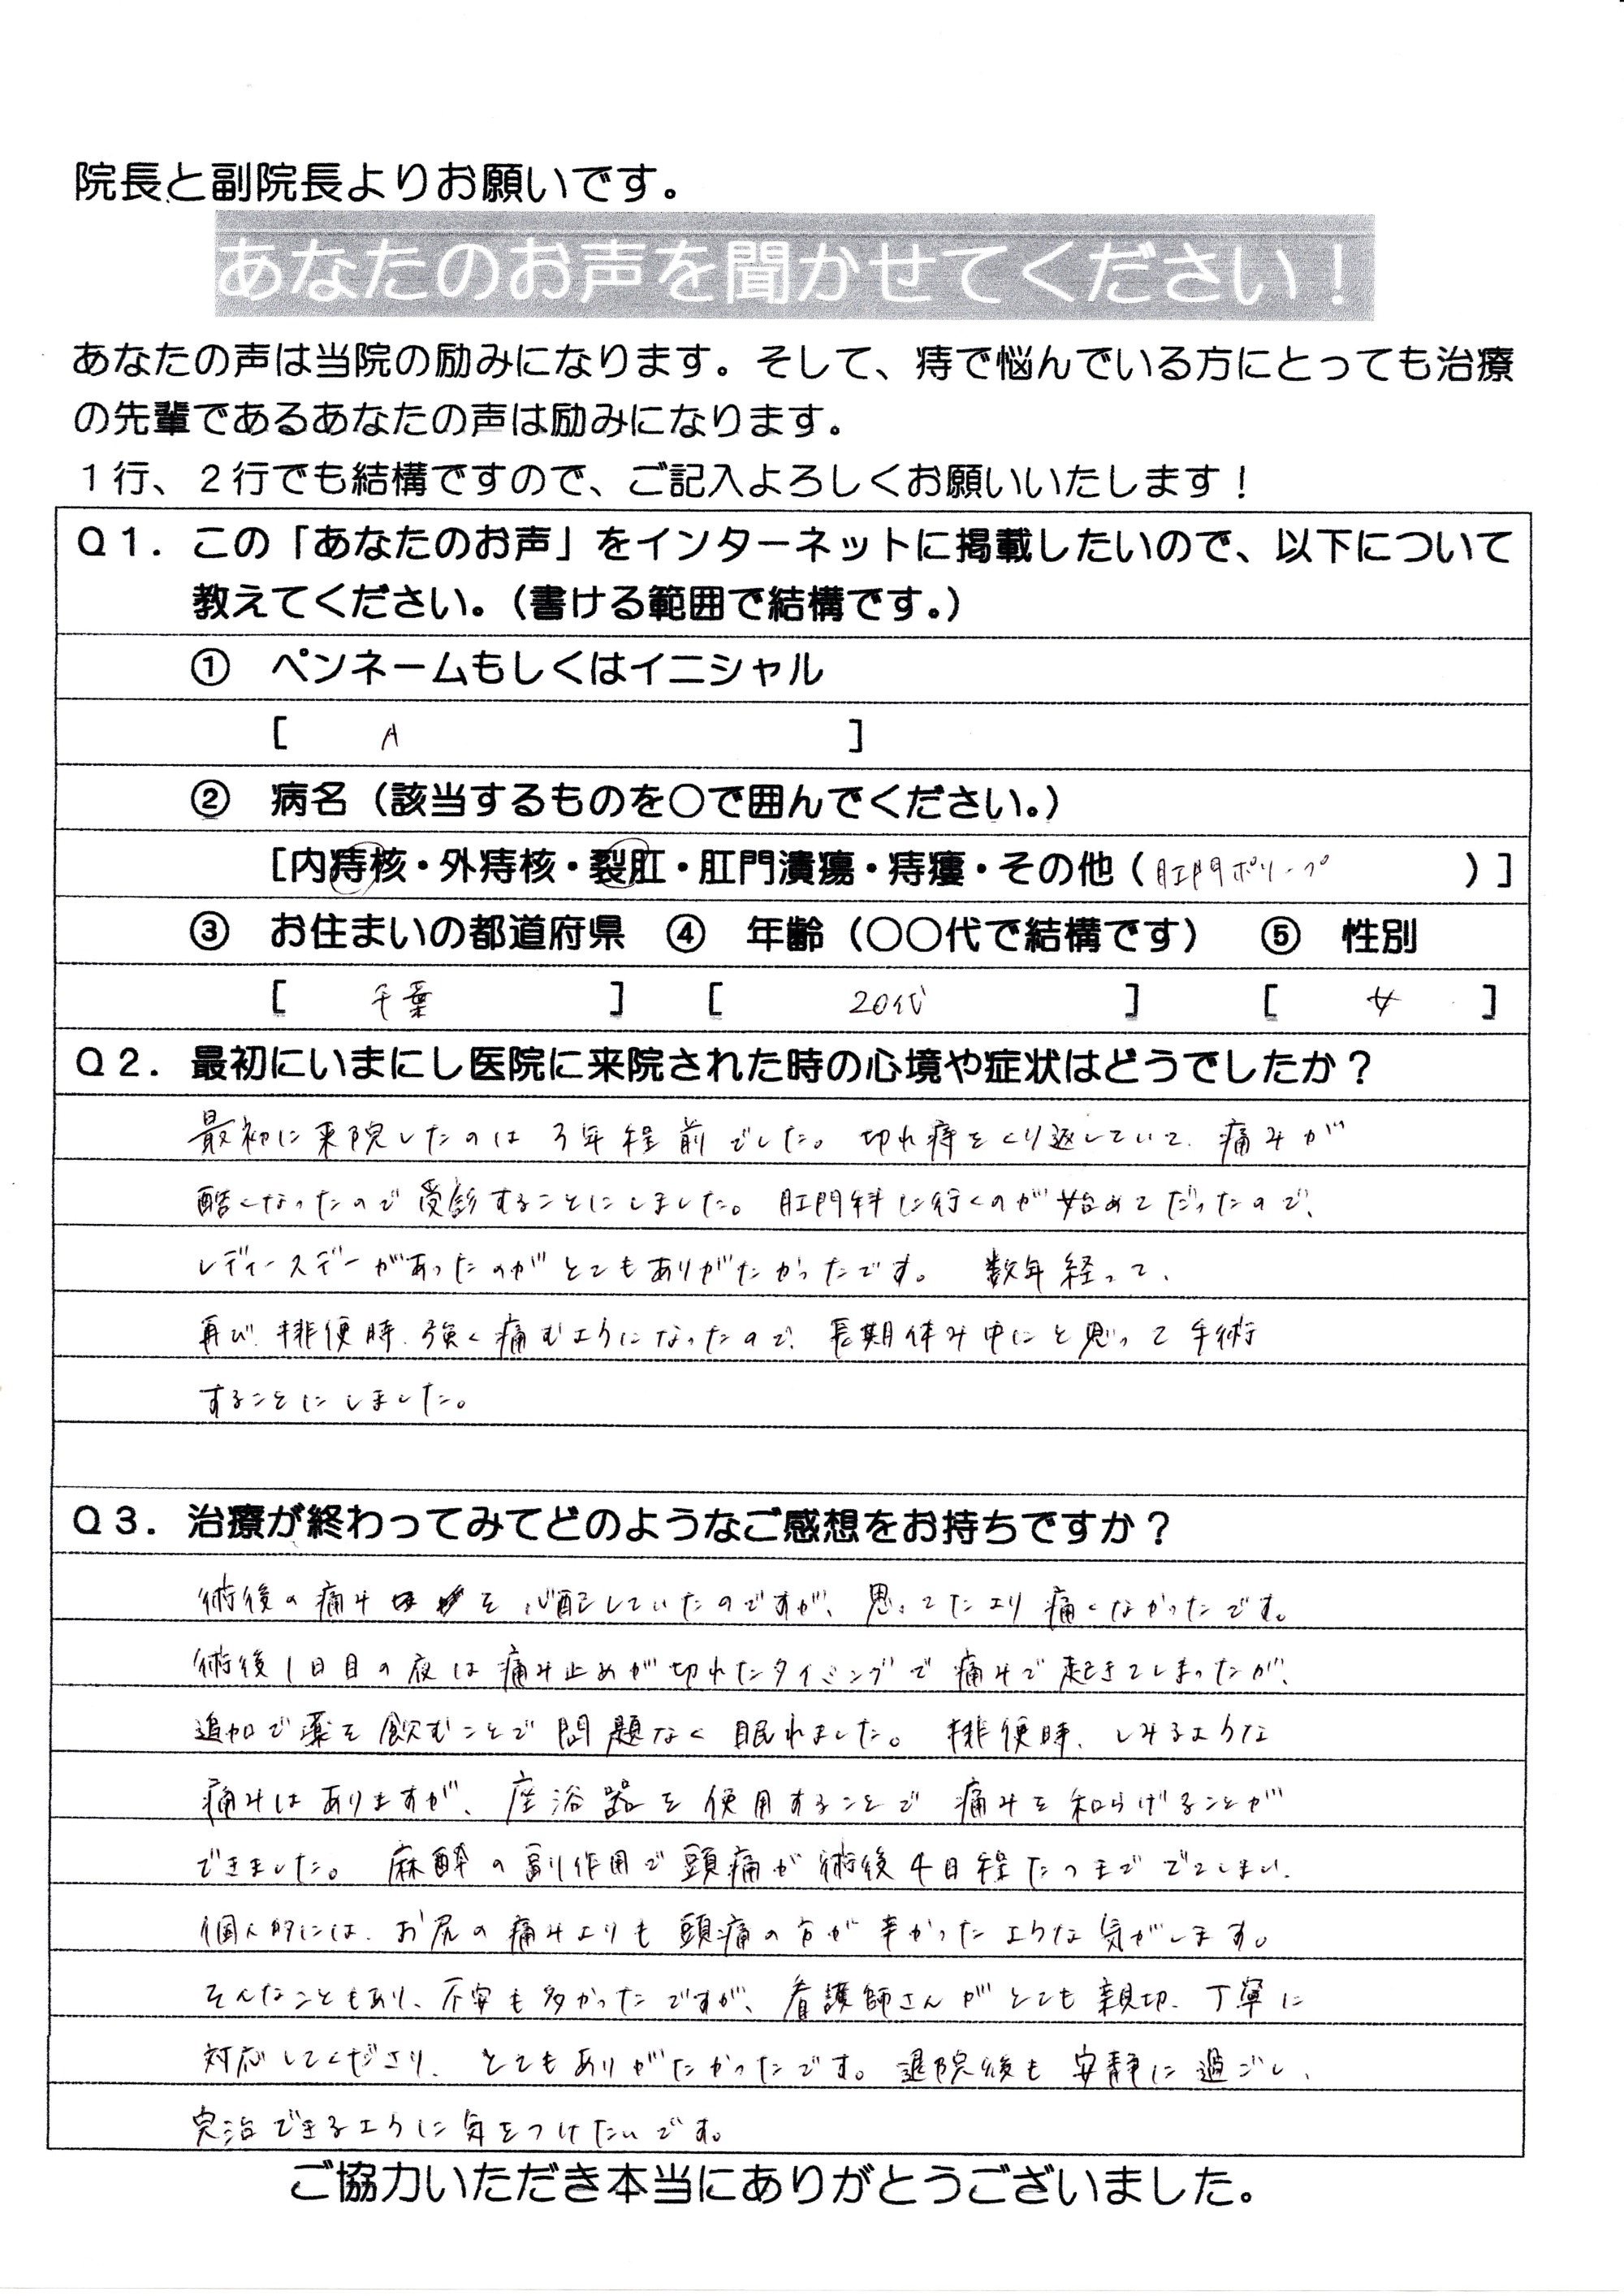 院長と副院長よりお願いです。
あなたのお声を聞かせてください！
あなたの声は当院の励みになります。そして、痔で悩んでいる方にとっても治療
の先輩であるあなたの声は励みになります。
１行、２行でも結構ですので、ご記入よろしくお願いいたします！
Ｑ１．この「あなたのお声」をインターネットに掲載したいので、以下について
教えてください。（書ける範囲で結構です。）
① ペンネームもしくはイニシャル
[ A ]
② 病名（該当するものを○で囲んでください。）
[内痔核・外痔核・裂肛・肛門潰瘍・痔瘻・その他（肛門ポリープ）]
③ お住まいの都道府県 ④ 年齢（○○代で結構です） ⑤ 性別
[ 千葉 ] [ 20代 ] [ 女 ]
Ｑ２．最初にいまにし医院に来院された時の心境や症状はどうでしたか？
最初に来院したのは3年程前でした。切れ痔をくり返していて、痛みが
酷くなったので受診することにしました。肛門科に行くのが始めてだったので、
レディースデーがあったのがとてもありがたかったです。数年経って、
再び、排便時、強く痛むようになったので、長期休み中にと思って手術
することにしました。
Ｑ３．治療が終わってみてどのようなご感想をお持ちですか？
術後の痛みを心配していたのですが、思ってたより痛くなかったです。
術後1日目の夜は痛み止めが切れたタイミングで痛みで起きてしまったが、
追加で薬を飲むことで問題なく眠れました。排便時、しみるような
痛みはありますが、座浴器を使用することで痛みを和らげることが
できました。麻酔の副作用で頭痛が術後4日程たつまででてしまい、
個人的には、お尻の痛みよりも頭痛の方が辛かったような気がします。
そんなこともあり、不安も多かったですが、看護師さんがとても親切、丁寧に
対応してくださり、とてもありがたかったです。退院後も安静に過ごし、
完治できるように気をつけたいです。
ご協力いただき本当にありがとうございました。